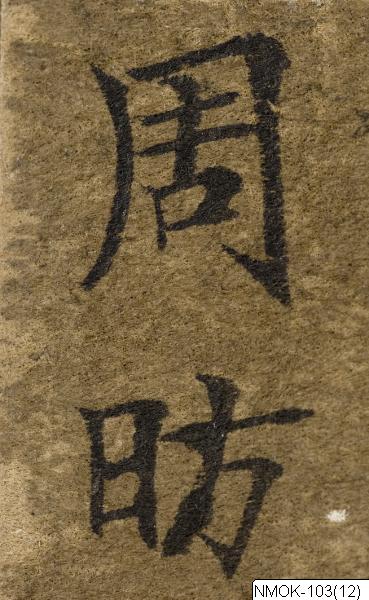 周昉
NMOK-103(12)